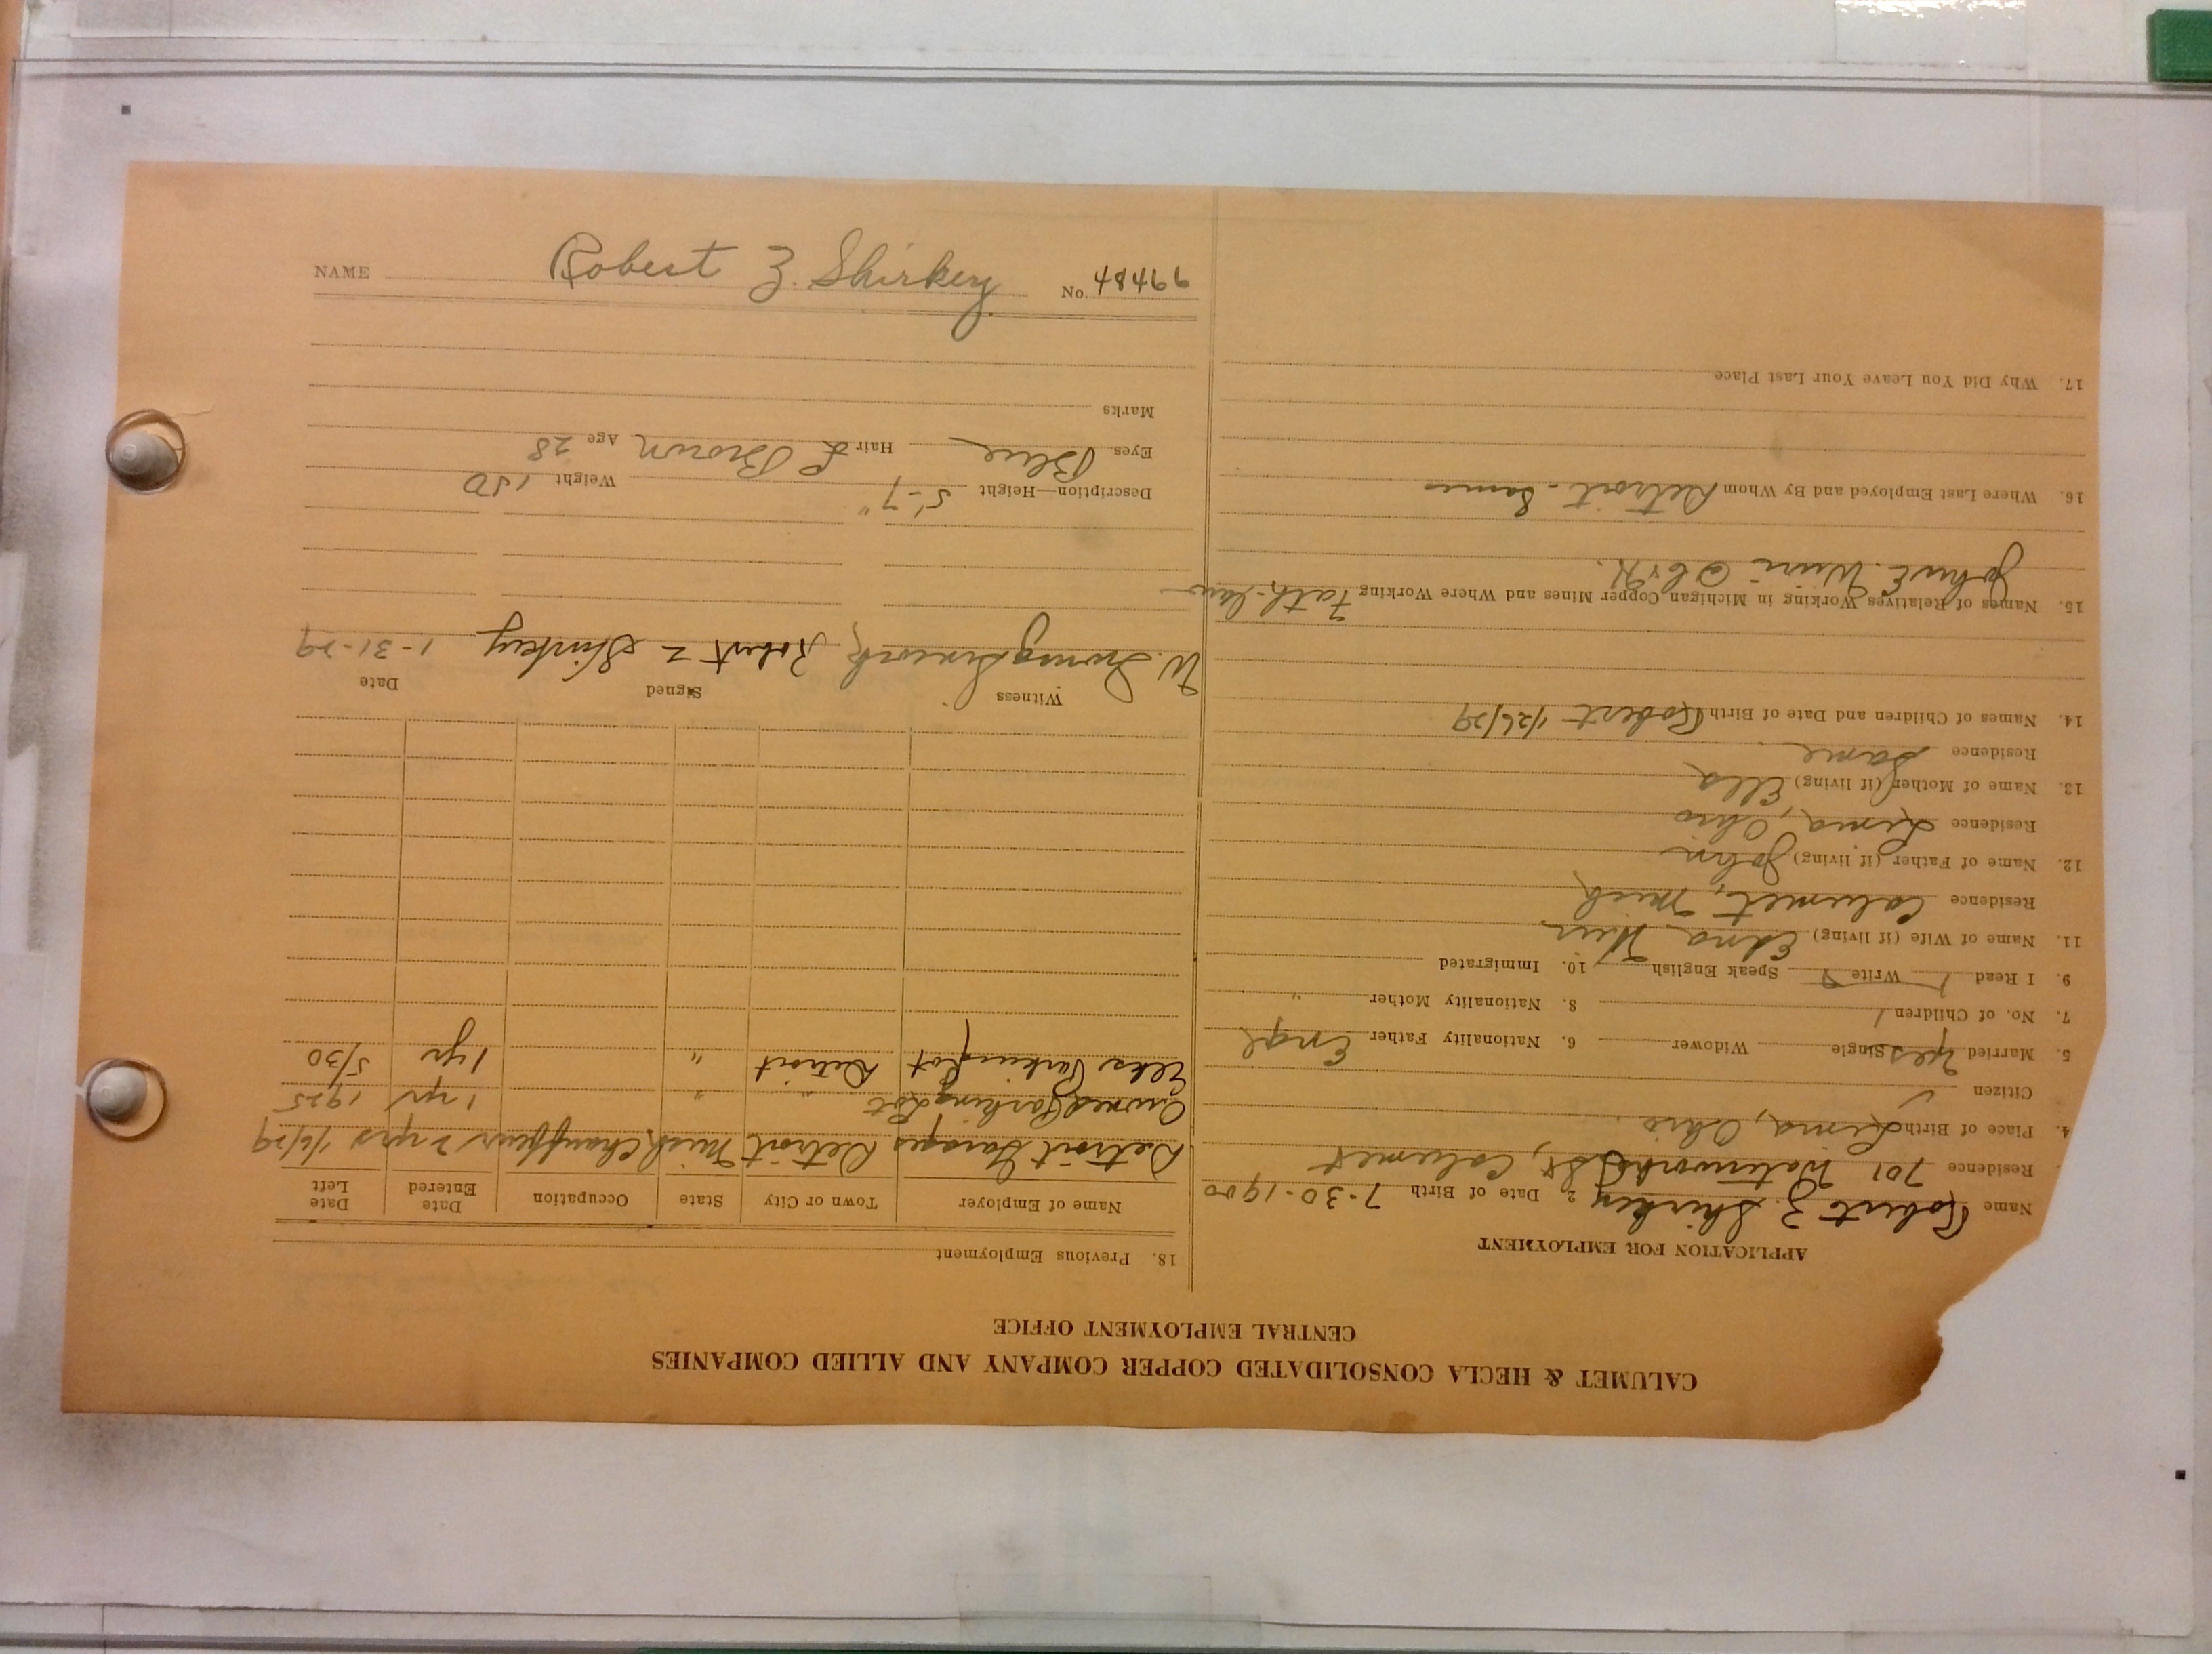 NAME Robert Z. Shirkey No. 48466
CALUMET & HECLA CONSOLIDATED COPPER COMPANY AND ALLIED COMPANIES
CENTRAL EMPLOYMENT OFFICE
APPLICATION FOR EMPLOYMENT
Name Robert Z. Shirkey 2. Date of Birth 7-30-1900
Residence 701 Waterworks St, Calumet
4. Place of Birth Lima, Ohio.
Citizen
5. Married yes Single Widower 6. Nationality Father Engl
7. No. of Children 1 8. Nationality Mother "
9. I Read Write Speak English 10. Immigrated
11. Name of Wife (if living) Edna
Residence Calumet, Mich
12. Name of Father (if living) John
Residence Lima, Ohio
13. Name of Mother (if living) Ella
Residence Same
14. Names of Children and Date of Birth Robert 1/26/29
15. Names of Relatives Working in Michigan Copper Mines and Where Working Fath-law
John E.
16. Where Last Employed and By Whom Detroit -
17. Why Did You Leave Your Last Place
18. Previous Employment
Name of Employer Town or City State Occupation Date Entered Date Left
Detroit Garages Detroit Mich Chauffeur 2 yrs 1/6/29
Owned Parking Lot " " 1 yr 1925
Elks Parking Lot Detroit " 1 yr 5/30
Witness Signed Date
W. Robert Z Shirkey 1-31-29
Description—Height 5'-7" Weight 150
Eyes Blue Hair L Brown Age 28
Marks